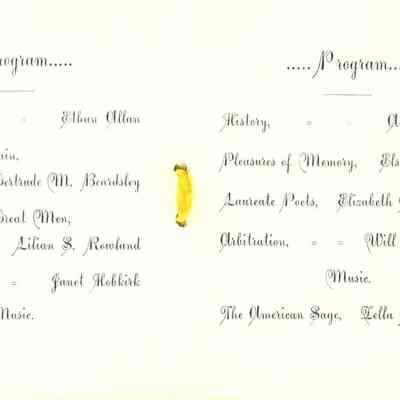 ogram.....
" Ethan Allan
ain,
ertrude M. Beardsley
Great Men,
Lilian S. Rowland
" Janet Hobkirk
Music.
.....Program...
History, " " A
Pleasures of Memory, Els
Laureate Poets, Elizabeth
Arbitration, " " Will
Music.
The American Sage, Zella